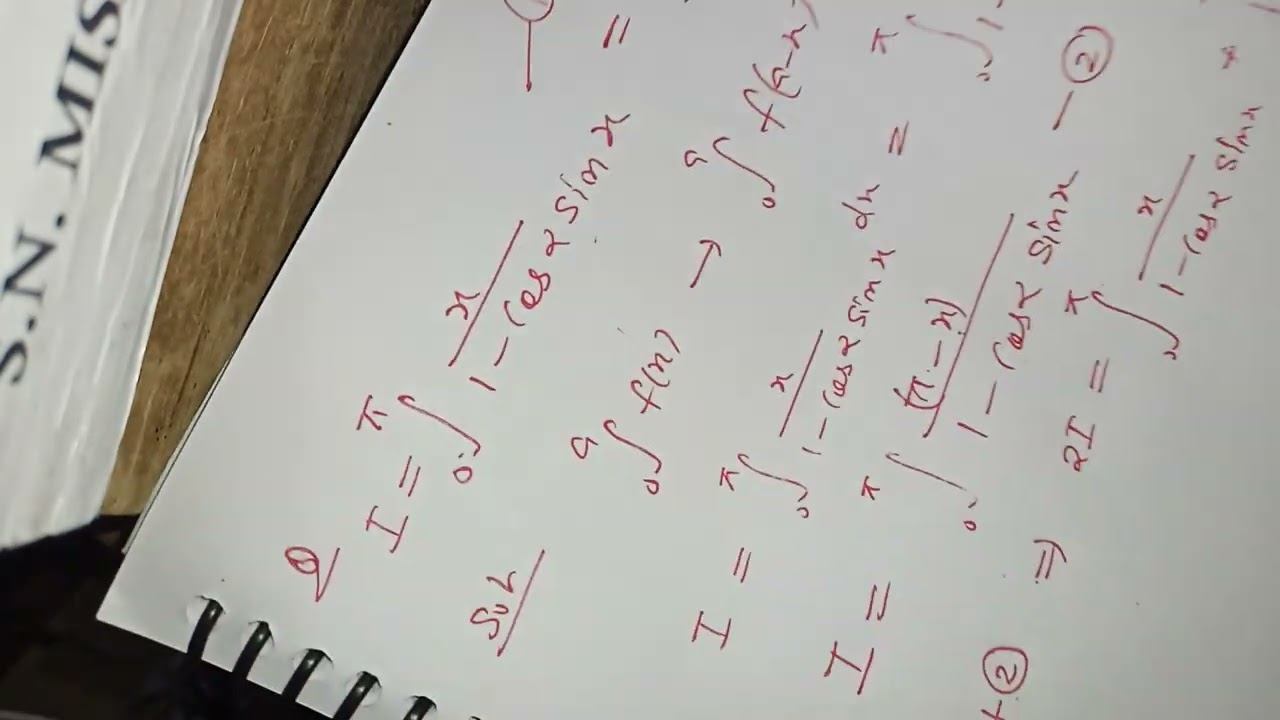 S.N. MIS
Q I = ∫₀^π x / (1 - Cos α Sin x) =
Solⁿ ∫₀^a f(x) → ∫₀^a f(a-x)
I = ∫₀^π x / (1 - Cos α Sin x) dx = ∫₀^π
I = ∫₀^π (π - x) / (1 - Cos α Sin x) — ②
+ ② ⇒ 2I = ∫₀^π x / (1 - Cos α Sin x) +